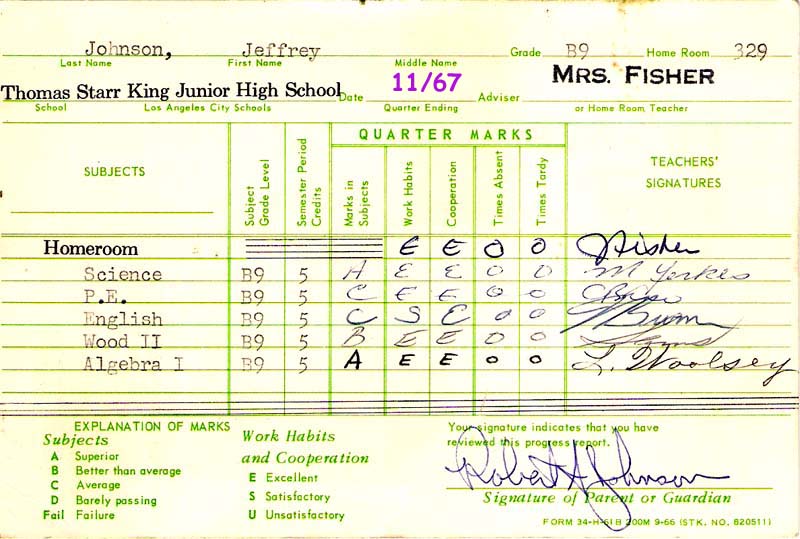 Johnson, Jeffrey Grade B9 Home Room 329
Last Name First Name Middle Name
Thomas Starr King Junior High School Date 11/67 Adviser MRS. FISHER
School Los Angeles City Schools Quarter Ending or Home Room Teacher
QUARTER MARKS
SUBJECTS Subject Grade Level Semester Period Credits Marks in Subjects Work Habits Cooperation Times Absent Times Tardy TEACHERS' SIGNATURES
Homeroom E E 0 0 Fisher
Science B9 5 A E E 0 0 M Yerkes
P.E. B9 5 C E E 0 0
English B9 5 C S E 0 0
Wood II B9 5 B E E 0 0
Algebra I B9 5 A E E 0 0 L. Woolsey
EXPLANATION OF MARKS
Subjects
A Superior
B Better than average
C Average
D Barely passing
Fail Failure
Work Habits
and Cooperation
E Excellent
S Satisfactory
U Unsatisfactory
Your signature indicates that you have
reviewed this progress report.
Robert A Johnson
Signature of Parent or Guardian
FORM 34-H-61B 200M 9-66 (STK. NO. 820511)